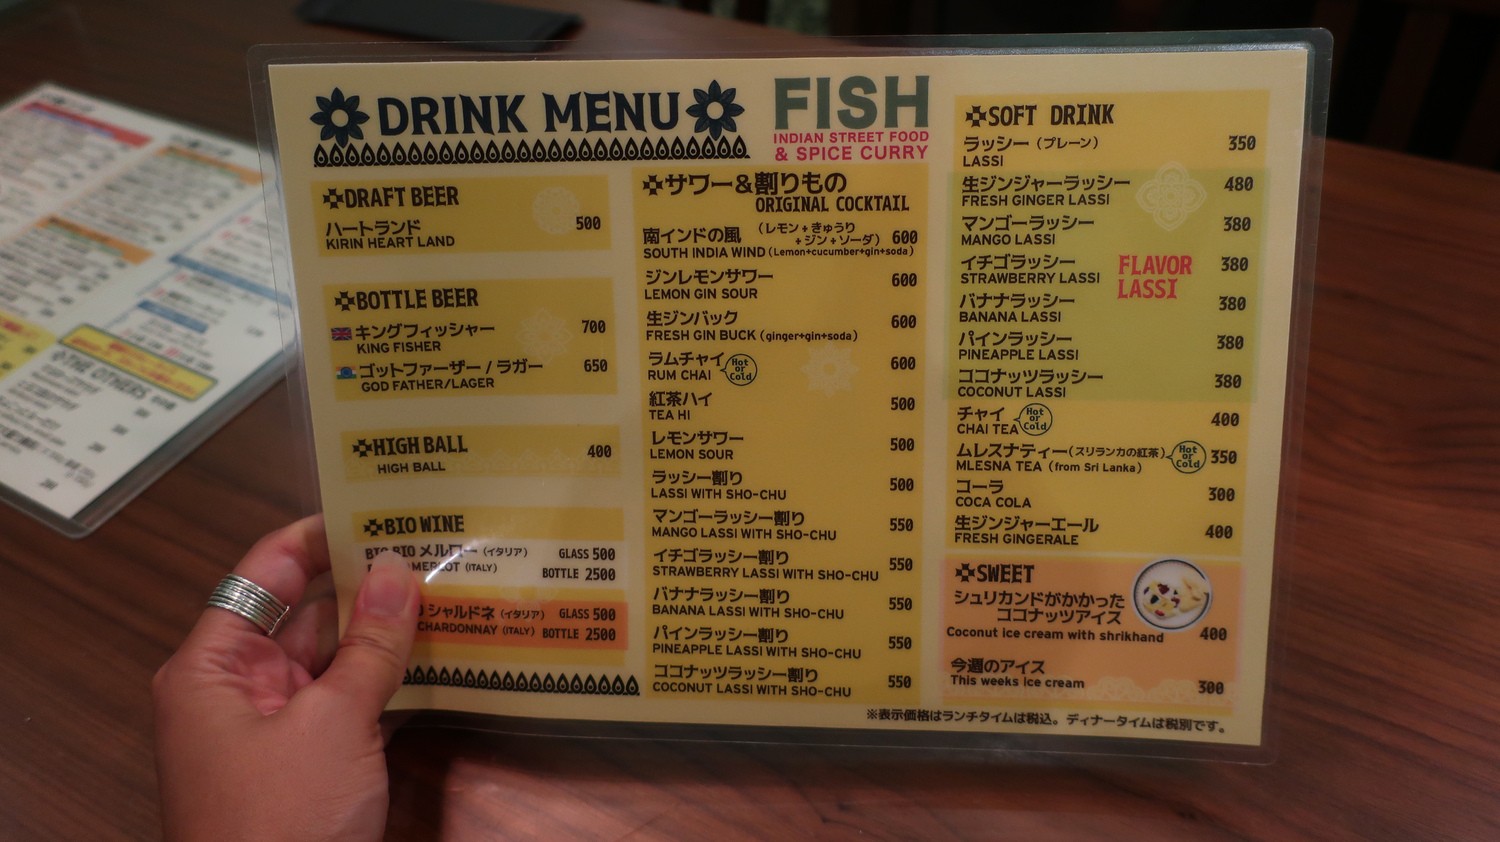 DRINK MENU
FISH
INDIAN STREET FOOD
& SPICE CURRY
DRAFT BEER
ハートランド 500
KIRIN HEART LAND
BOTTLE BEER
キングフィッシャー 700
KING FISHER
ゴットファーザー / ラガー 650
GOD FATHER/LAGER
HIGH BALL 400
HIGH BALL
BIO WINE
BIO BIO メルロー (イタリア) GLASS 500
MERLOT (ITALY) BOTTLE 2500
シャルドネ (イタリア) GLASS 500
CHARDONNAY (ITALY) BOTTLE 2500
サワー&割りもの
ORIGINAL COCKTAIL
南インドの風 (レモン+きゅうり
+ジン+ソーダ) 600
SOUTH INDIA WIND (Lemon+cucumber+gin+soda)
ジンレモンサワー 600
LEMON GIN SOUR
生ジンバック 600
FRESH GIN BUCK (ginger+gin+soda)
ラムチャイ Hot or Cold 600
RUM CHAI
紅茶ハイ 500
TEA HI
レモンサワー 500
LEMON SOUR
ラッシー割り 500
LASSI WITH SHO-CHU
マンゴーラッシー割り 550
MANGO LASSI WITH SHO-CHU
イチゴラッシー割り 550
STRAWBERRY LASSI WITH SHO-CHU
バナナラッシー割り 550
BANANA LASSI WITH SHO-CHU
パインラッシー割り 550
PINEAPPLE LASSI WITH SHO-CHU
ココナッツラッシー割り 550
COCONUT LASSI WITH SHO-CHU
SOFT DRINK
ラッシー (プレーン) 350
LASSI
生ジンジャーラッシー 480
FRESH GINGER LASSI
マンゴーラッシー 380
MANGO LASSI
イチゴラッシー 380
STRAWBERRY LASSI
FLAVOR
LASSI
バナナラッシー 380
BANANA LASSI
パインラッシー 380
PINEAPPLE LASSI
ココナッツラッシー 380
COCONUT LASSI
チャイ Hot or Cold 400
CHAI TEA
ムレスナティー (スリランカの紅茶) Hot or Cold 350
MLESNA TEA (from Sri Lanka)
コーラ 300
COCA COLA
生ジンジャーエール 400
FRESH GINGERALE
SWEET
シュリカンドがかかった
ココナッツアイス
Coconut ice cream with shrikhand 400
今週のアイス
This weeks ice cream 300
※表示価格はランチタイムは税込。ディナータイムは税別です。
THE OTHERS